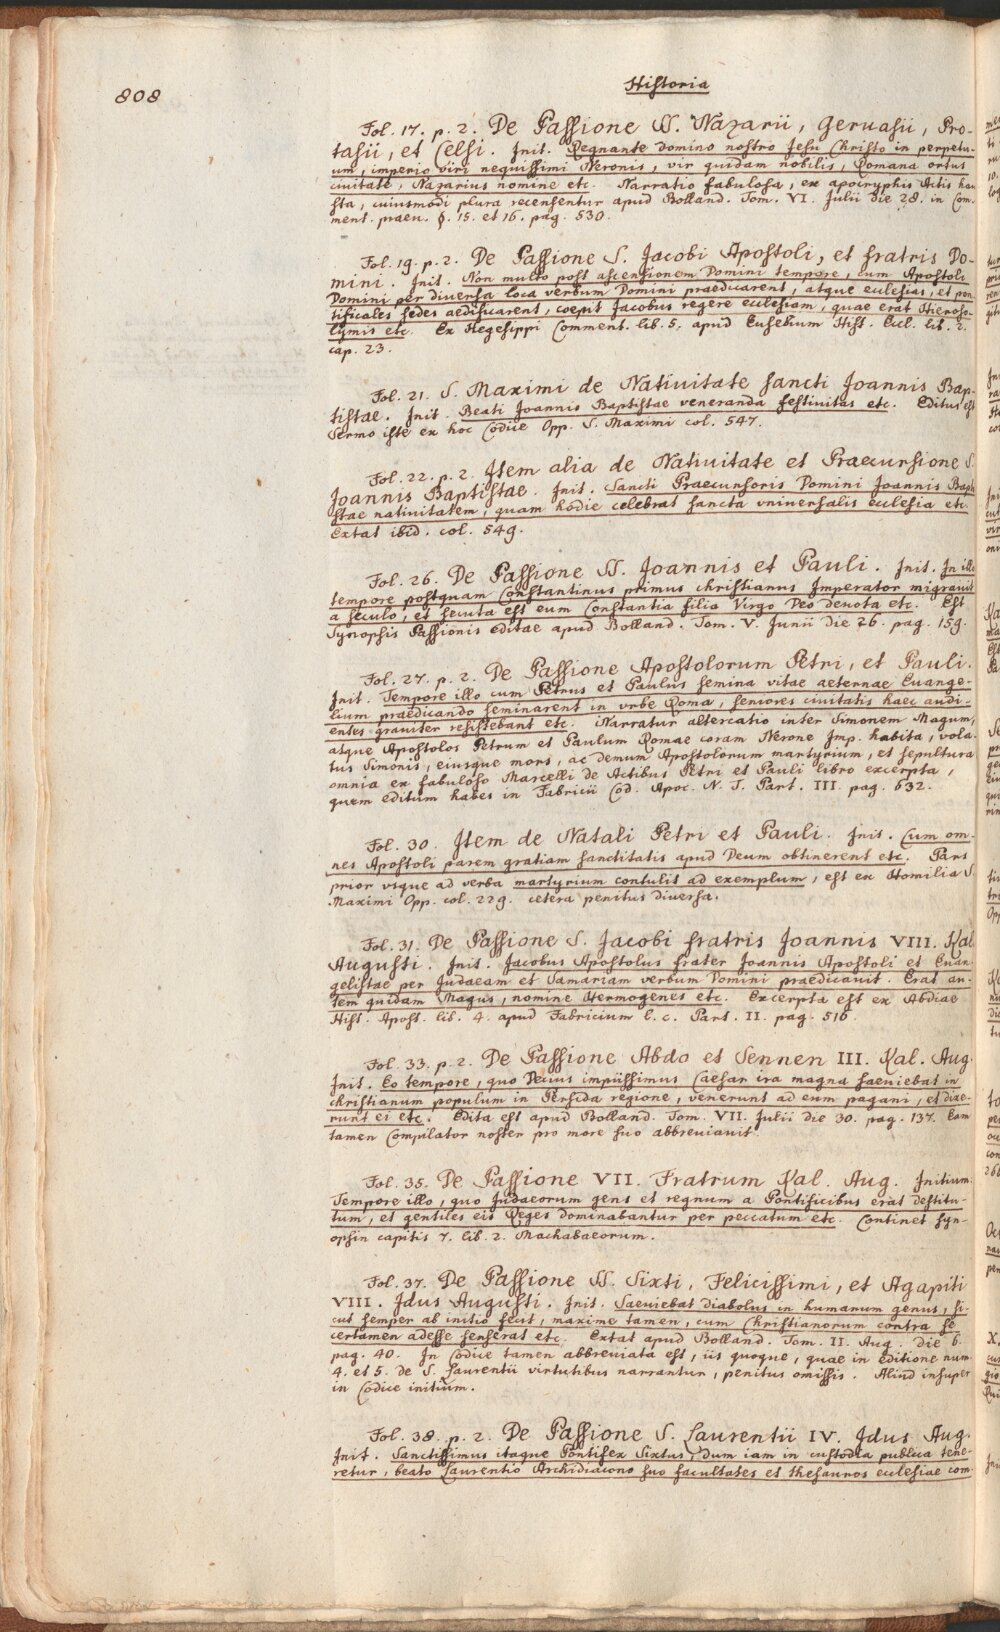 808
Historia
Fol. 17. p. 2. De Passione SS. Nazarii, Geruasii, Pro-
tasii, et Celsi. Init. Regnante domino nostro Jesu Christo in perpetu-
um, imperio viri nequissimi Neronis, vir quidam nobilis, Romana ortus
ciuitate, Nazarius nomine etc. Narratio fabulosa, ex apocryphis Actis hau
sta, cuiusmodi plura recensentur apud Bolland. Tom. VI. Julii die 28. in Com-
ment. praeu. §. 15. et 16. pag. 530.
Fol. 19. p. 2. De Passione S. Jacobi Apostoli, et fratris Do-
mini. Init. Non multo post ascensionem Domini tempore, cum Apostoli
Domini per diuersa loca verbum Domini praedicarent, atque ecclesias, et pon
tificales sedes aedificarent, coepit Jacobus regere ecclesiam, quae erat Hieroso-
lymis etc. Ex Hegesippi Comment. lib. 5. apud Eusebium Hist. Eccl. lib. 2.
cap. 23.
Fol. 21. S. Maximi de Natiuitate sancti Joannis Bap-
tistae. Init. Beati Joannis Baptistae veneranda festiuitas etc. Editus est
Sermo iste ex hoc Codice Opp. S. Maximi col. 547.
Fol. 22. p. 2. Item alia de Natiuitate et Praecursione S.
Joannis Baptistae. Init. Sancti Praecursoris Domini Joannis Bapti
stae natiuitatem, quam hodie celebrat sancta vniuersalis ecclesia etc.
Extat ibid. col. 549.
Fol. 26. De Passione SS. Joannis et Pauli. Init. In illo
tempore postquam Constantinus primus christianus Imperator migrauit
a seculo, et secuta est eum Constantia filia Virgo Deo deuota etc. Est
Synopsis Passionis editae apud Bolland. Tom. V. Junii die 26. pag. 159.
Fol. 27. p. 2. De Passione Apostolorum Petri, et Pauli.
Init. Tempore illo cum Petrus et Paulus semina vitae aeternae Euange-
lium praedicando seminarent in vrbe Roma, seniores ciuitatis haec audi-
entes grauiter resistebant etc. Narratur altercatio inter Simonem Magum,
atque Apostolos Petrum et Paulum Romae coram Nerone Imp. habita, vola-
tus Simonis, eiusque mors, ac demum Apostolorum martyrium, et sepultura
omnia ex fabuloso Marcelli de Actibus Petri et Pauli libro excerpta,
quem editum habes in Fabricii Cod. Apoc. N. T. Part. III. pag. 632.
Fol. 30. Item de Natali Petri et Pauli. Init. Cum om-
nes Apostoli parem gratiam sanctitatis apud Deum obtinerent etc. Pars
prior vsque ad verba martyrium contulit ad exemplum, est ex Homilia S.
Maximi Opp. col. 229. cetera penitus diuersa.
Fol. 31. De Passione S. Jacobi fratris Joannis VIII. Kal.
Augusti. Init. Jacobus Apostolus frater Joannis Apostoli et Euan-
gelistae per Judaeam et Samariam verbum Domini praedicauit. Erat au-
tem quidam Magus, nomine Hermogenes etc. Excerpta est ex Abdiae
Hist. Apost. lib. 4. apud Fabricium l. c. Part. II. pag. 516.
Fol. 33. p. 2. De Passione Abdo et Sennen III. Kal. Aug.
Init. Eo tempore, quo Decius impiissimus Caesar ira magna saeuiebat in
christianum populum in Persida regione, venerunt ad eum pagani, et dixe-
runt ei etc. Edita est apud Bolland. Tom. VII. Julii die 30. pag. 137. Eam
tamen Compilator noster pro more suo abbreuiauit.
Fol. 35. De Passione VII. Fratrum Kal. Aug. Initium.
Tempore illo, quo Judaeorum gens et regnum a Pontificibus erat destitu-
tum, et gentiles eis Reges dominabantur per peccatum etc. Continet syn-
opsin capitis 7. lib. 2. Machabaeorum.
Fol. 37. De Passione SS. Sixti, Felicissimi, et Agapiti
VIII. Idus Augusti. Init. Saeuiebat diabolus in humanum genus, si-
cut semper ab initio fecit, maxime tamen, cum Christianorum contra se
certamen adesse senserat etc. Extat apud Bolland. Tom. II. Aug. die 6.
pag. 40. In Codice tamen abbreuiata est, iis quoque, quae in editione num.
4. et 5. de S. Laurentii virtutibus narrantur, penitus omissis. Aliud insuper
in Codice initium.
Fol. 38. p. 2. De Passione S. Laurentii IV. Idus Aug.
Init. Sanctissimus itaque Pontifex Sixtus, dum iam in custodia publica tene-
retur, beato Laurentio Archidiacono suo facultates et thesauros ecclesiae com-